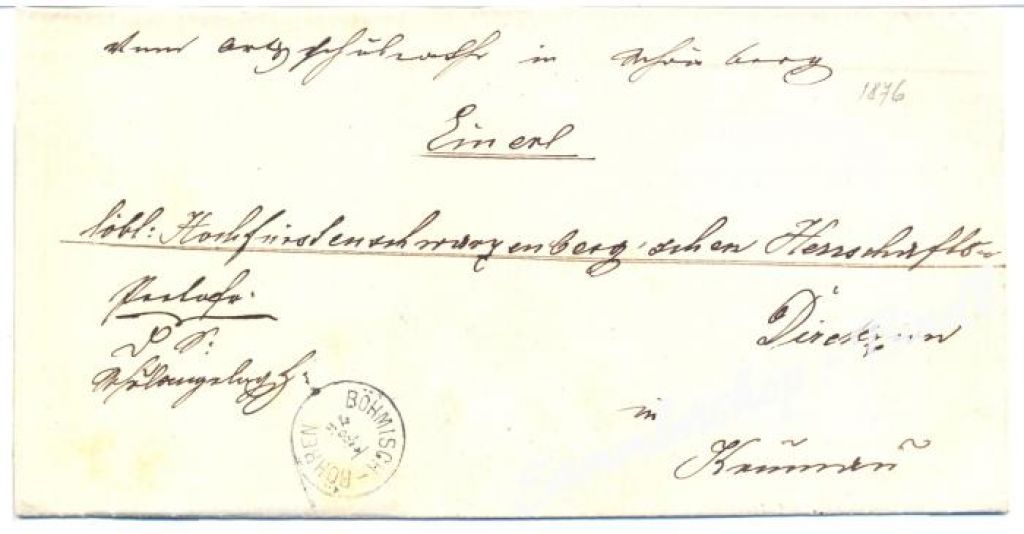 Vom Ortsschulrathe in Schönberg
1876
Einerl
löbl: Hochfürstenschwarzenberg'schen Herrschafts-
Direktion
D. S:
Schulangelegh:
in
Krumau
BÖHMISCH-RÖHREN